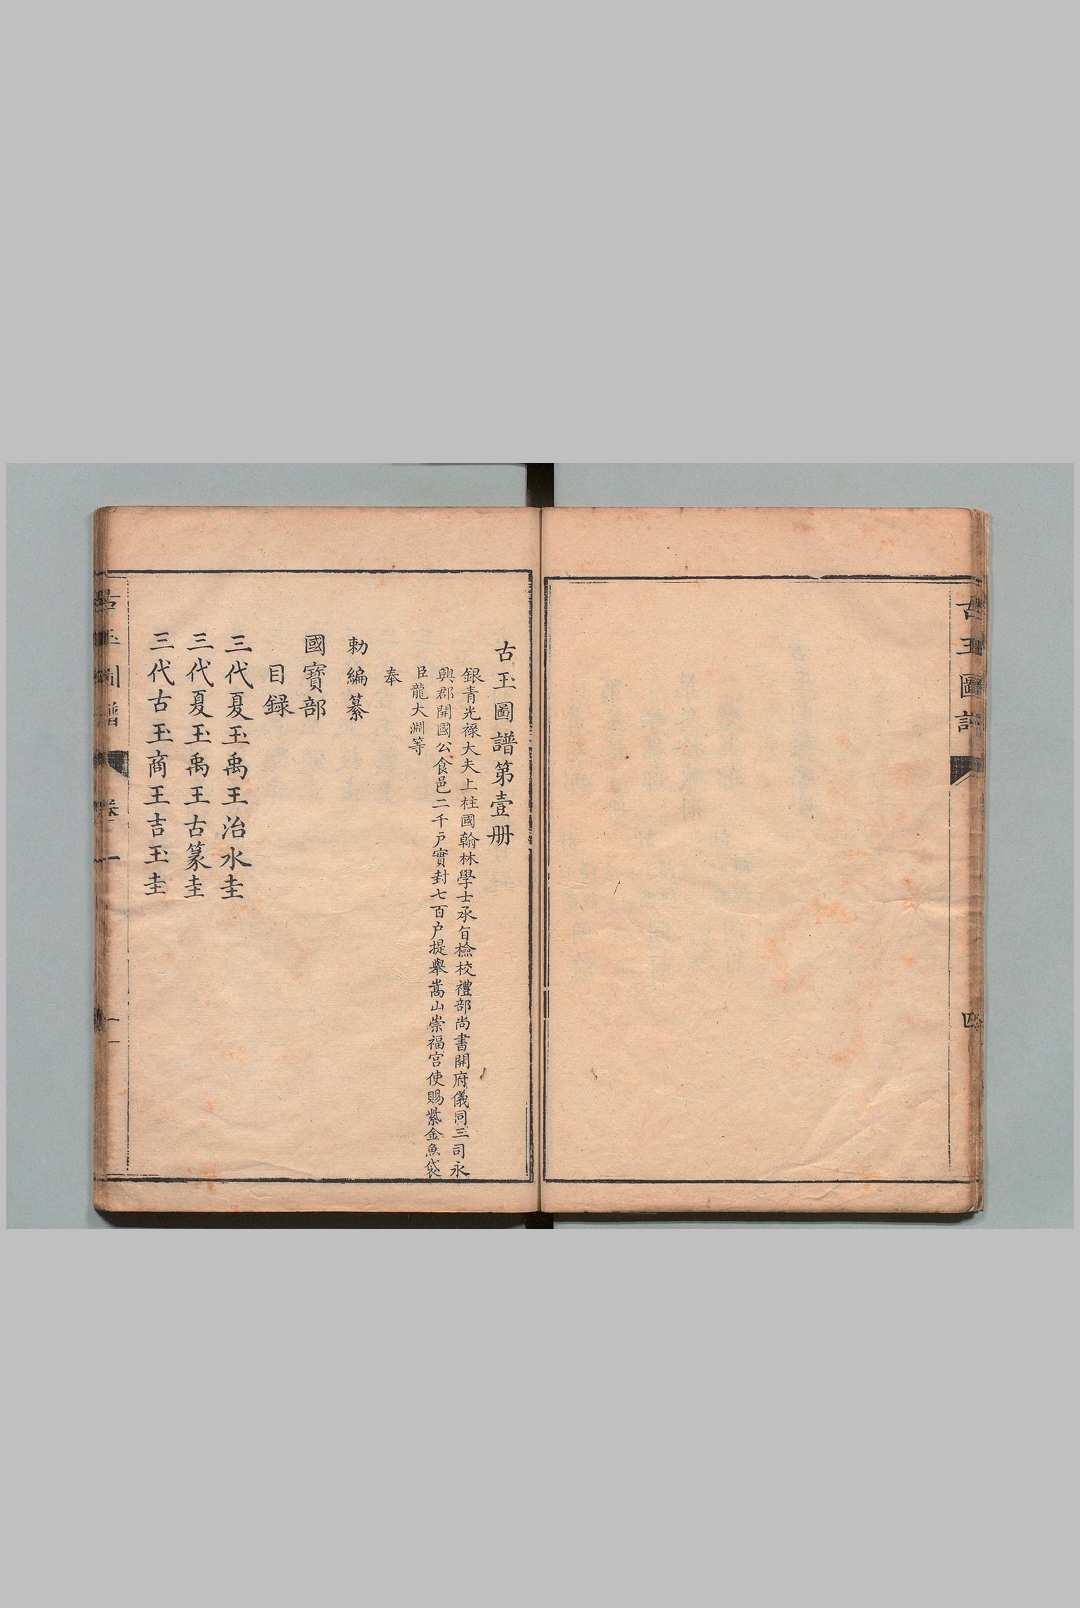 古玉圖
四
古玉圖譜第壹册
銀青光祿大夫上柱國翰林學士承旨檢校禮部尚書開府儀同三司永
興郡開國公食邑二千戶實封七百户提舉嵩山崇福宮使賜紫金魚袋
臣龍大淵等
奉
勅編纂
國寶部
目録
三代夏玉禹王治水圭
三代夏玉禹王古篆圭
三代古玉商王吉玉圭
譜
卷
一